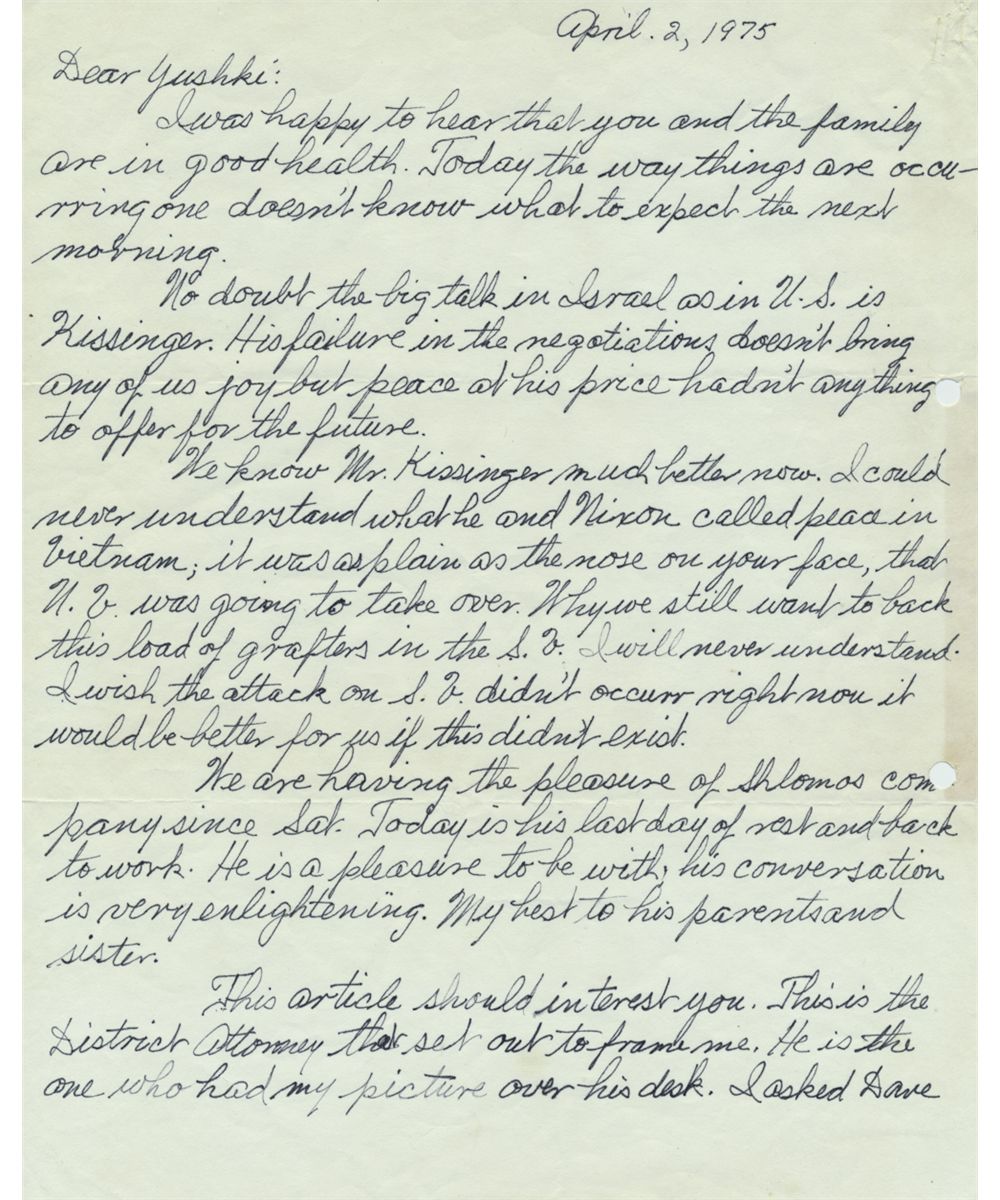 April. 2, 1975
Dear Yushki:
I was happy to hear that you and the family
are in good health. Today the way things are occu-
rring one doesn't know what to expect the next
morning.
No doubt the big talk in Israel as in U.S. is
Kissinger. His failure in the negotiations doesn't bring
any of us joy but peace at his price hadn't anything
to offer for the future.
We know Mr. Kissinger much better now. I could
never understand what he and Nixon called peace in
Vietnam; it was as plain as the nose on your face, that
N.V. was going to take over. Why we still want to back
this load of grafters in the S.V. I will never understand.
I wish the attack on S.V. didn't occurr right now it
would be better for us if this didn't exist.
We are having the pleasure of Shlomos com-
pany since Sat. Today is his last day of rest and back
to work. He is a pleasure to be with, his conversation
is very enlightening. My best to his parents and
sister.
This article should interest you. This is the
District Attorney that set out to frame me. He is the
one who had my picture over his desk. I asked Dave